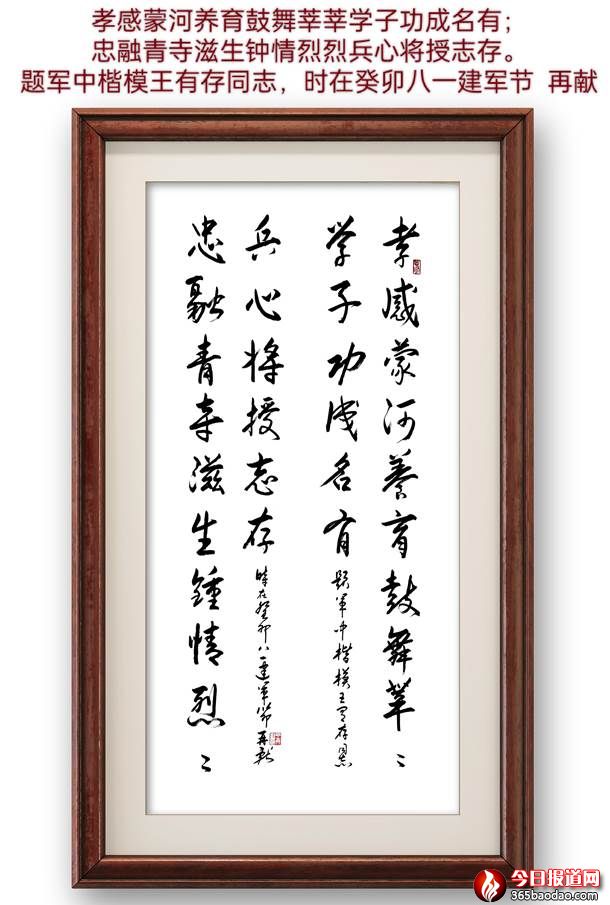 孝感蒙河养育鼓舞莘莘学子功成名有；
忠融青寺滋生钟情烈烈兵心将授志存。
题军中楷模王有存同志，时在癸卯八一建军节 再献
孝感蒙河養育鼓舞莘〻
学子功成名有
题军中楷模王有存同志
忠融青寺滋生鍾情烈〻
兵心将授志存
時在癸卯八一建军节再献
今日报道网
365baodao.com